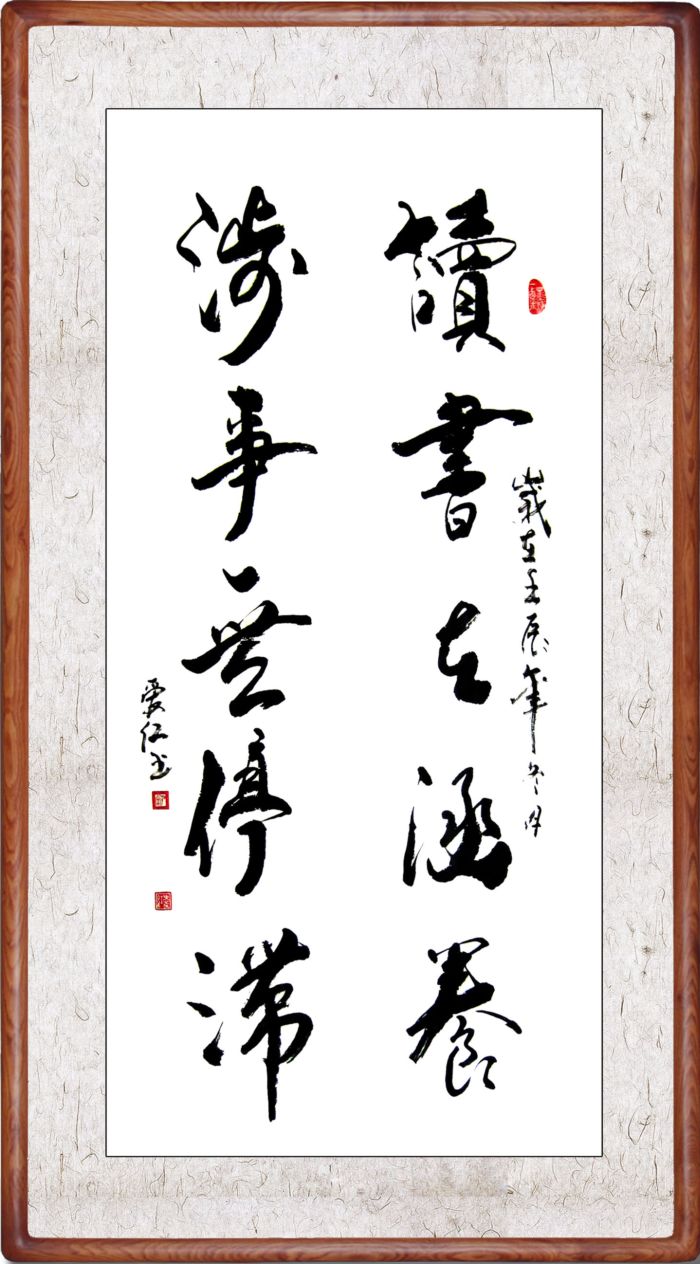 歲在壬辰年冬月
讀書在涵養
涉事無停滯
愛仁书